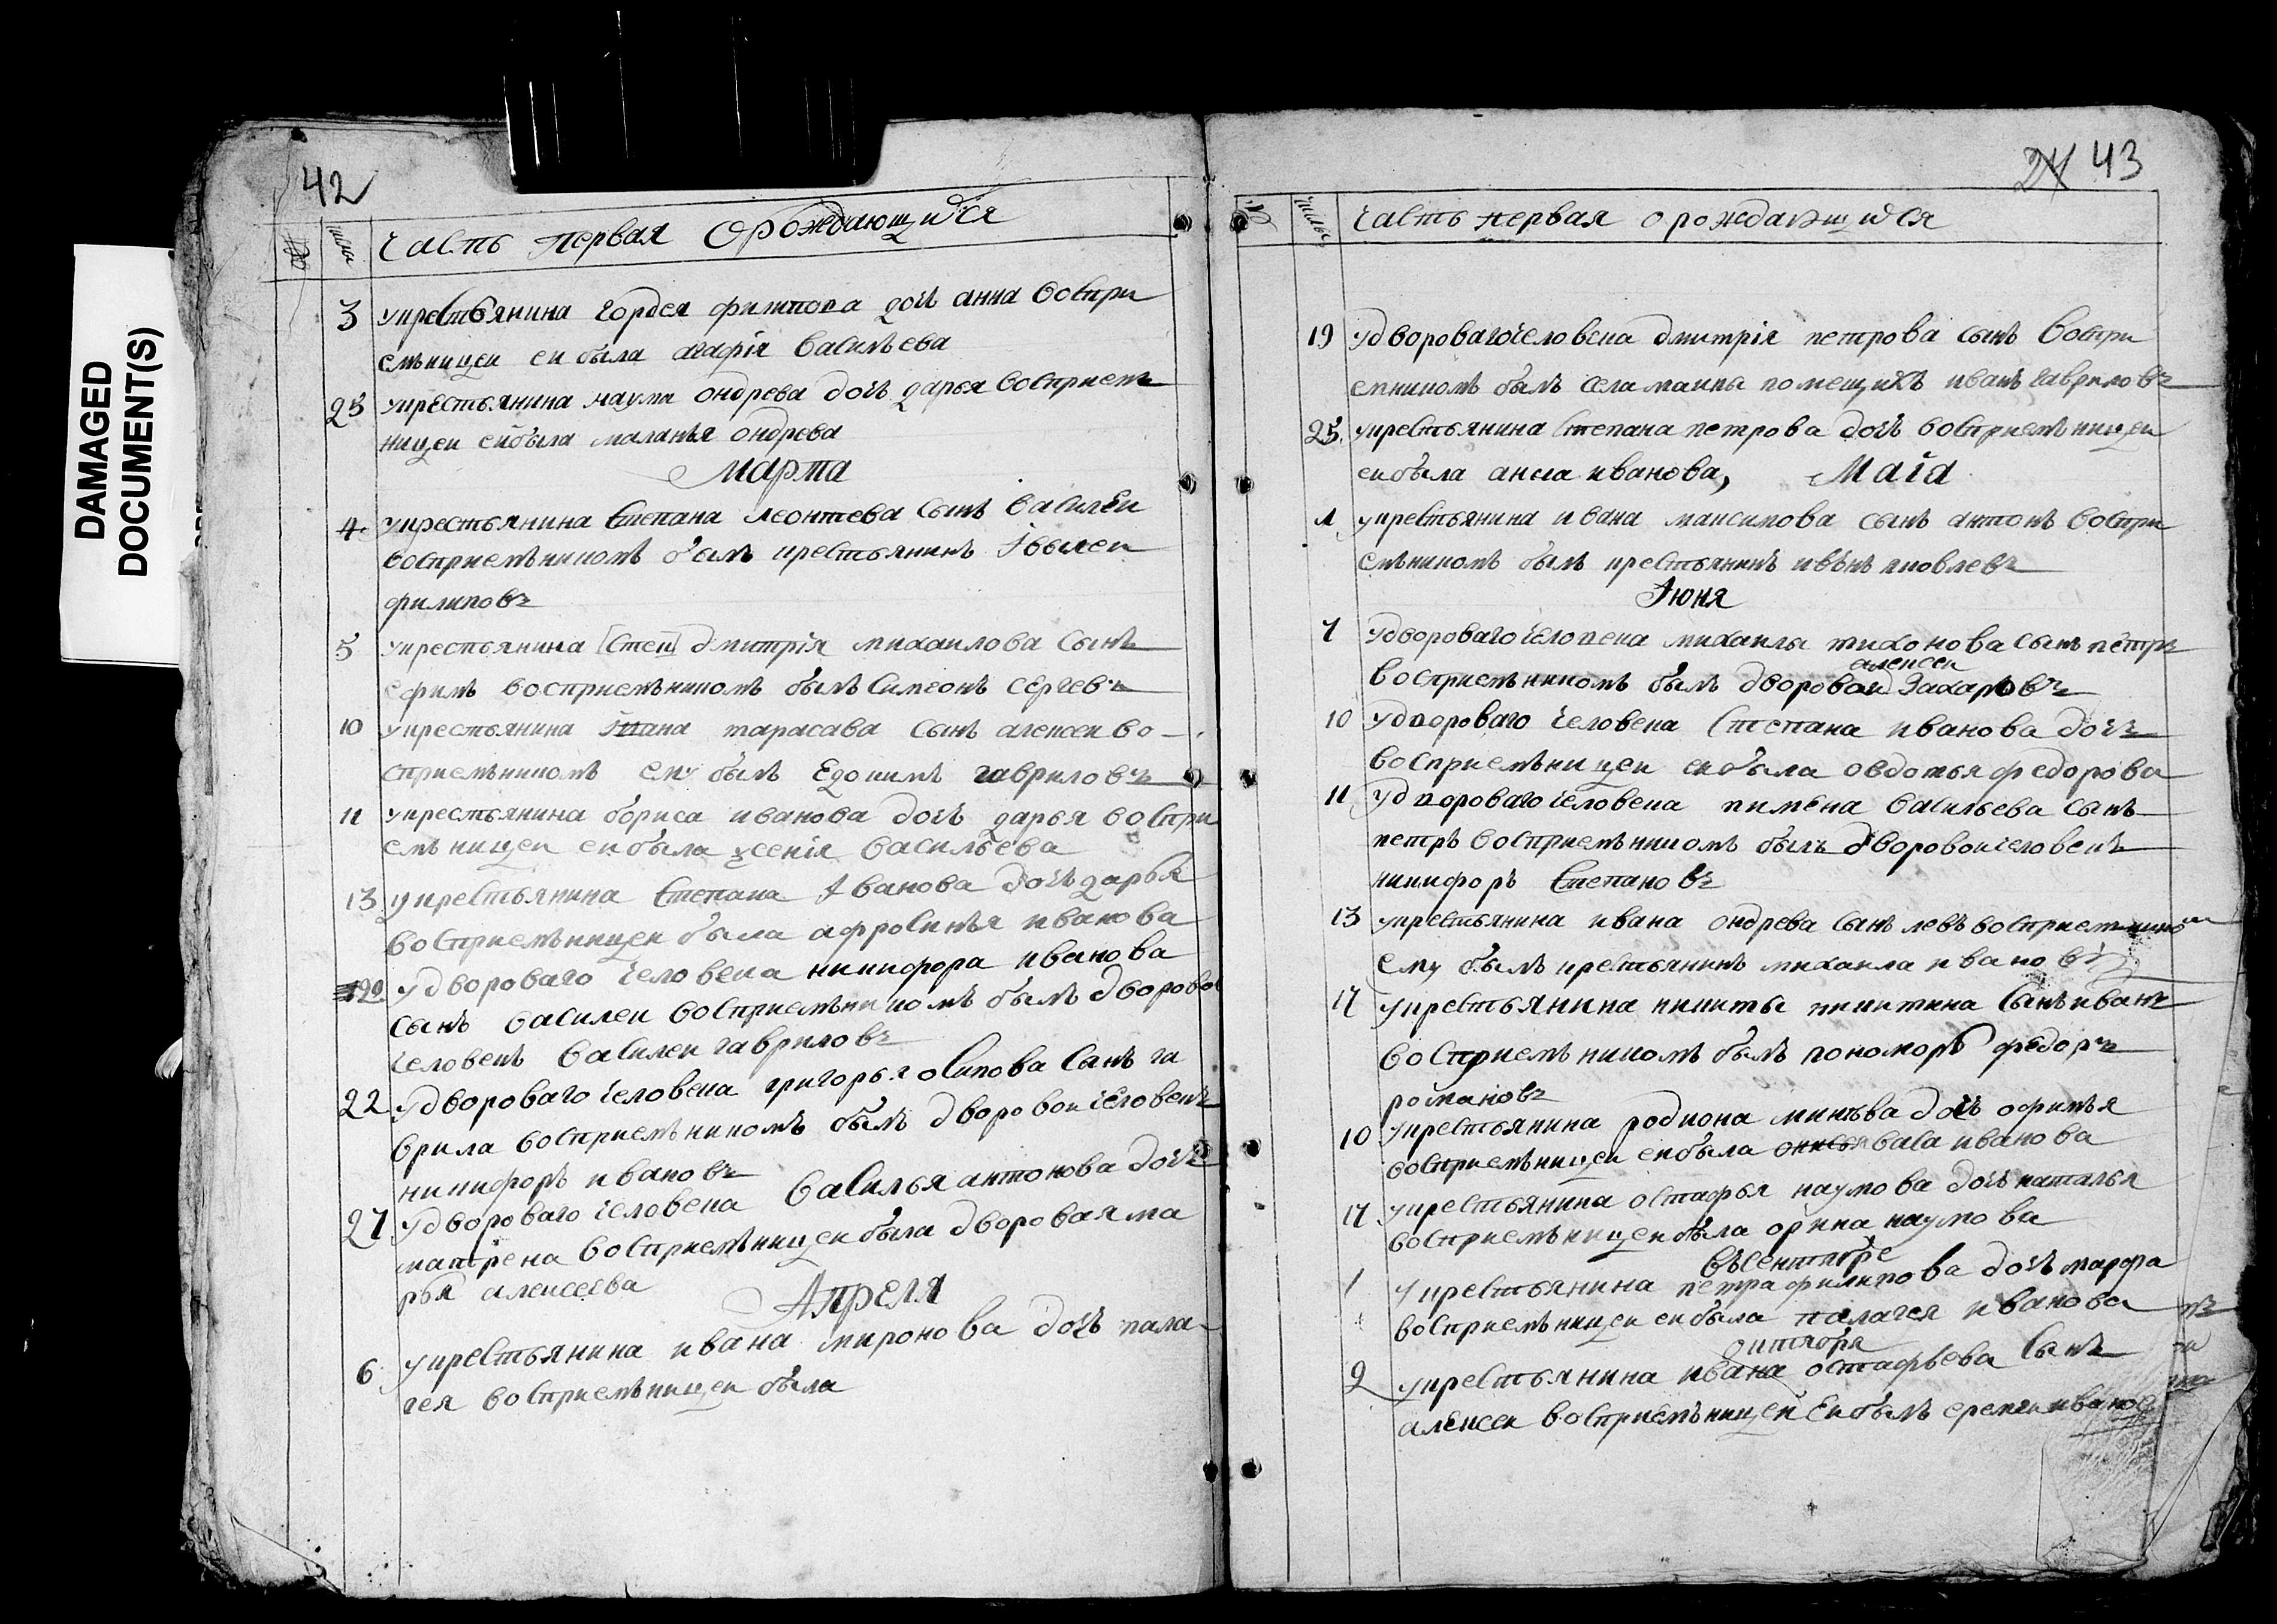 DAMAGED
DOCUMENT(S)
42
числа
Часть первая О рождающихся
3 у крестьянина Гордея филипова дочь анна воспри
емницеи еи была агафія васильева
25 у крестьянина наума ондрева дочь дарья восприем
ницеи еи была маланья ондрева
Марта
4 у крестьянина Степана леонтева сынъ василеи
восприемъникомъ былъ крестьянинъ
филиповъ
5 у крестьянина [Степ] дмитрія михаилова сынъ
ефимъ восприемъникомъ былъ симеонъ сергевъ
10 у крестьянина тарасава сынъ алексеи во-
сприемъникомъ ему былъ Едокимъ гавриловъ
11 у крестьянина бориса иванова дочь дарья воспри
емъницеи еи была ѯенія васильева
13 у крестьянина Степана Іванова дочь дарья
восприемъницеи была афросинья иванова
20 у двороваго человека никифора иванова
сынъ василеи восприемъникомъ былъ дворовои
человекъ василеи гавриловъ
22 у двороваго человека григорья осипова сынъ га
врила восприемъникомъ былъ дворовои человекъ
никифоръ ивановъ
27 у двороваго человека василья антонова дочь
матрена восприемъницеи была дворовая ма
рья алексеева
Апреля
6 у крестьянина ивана миронова дочь пала-
гея восприемъницеи была
24 43
числа
Часть первая о рождающихся
19 у двороваго человека дмитрія петрова сынъ воспри
емникомъ былъ села маины помещикъ иванъ гавриловъ
25 у крестьянина Степана петрова дочь восприемъницеи
еи была анна иванова, Маіа
1 у крестьянина ивана максимова сынъ антонъ воспри
емъникомъ былъ крестьянинъ иванъ яковлевъ
Іюня
7 у двороваго человека михаилы тихонова сынъ петръ
алексеи
восприемъникомъ былъ дворовои Захаровъ
10 у двороваго человека Степана иванова дочь
восприемъницеи еи была овдотья федорова
11 у двороваго человека пимена васильева сынъ
петръ восприемъникомъ былъ дворовои человекъ
никифоръ Степановъ
13 у крестьянина ивана ондрева сынъ левъ восприемникомъ
ему былъ крестьянинъ михаила ивановъ
17 у крестьянина никиты никитина сынъ иванъ
восприемъникомъ былъ пономоръ федоръ
романовъ
10 у крестьянина родиона минева дочь офимья
восприемъницеи еи была васа иванова
17 у крестьянина остафья наумова дочь наталья
восприемъницеи была орина наумова
въ сентябре
1 у крестьянина петра филипова дочь марфа
восприемъницеи еи была палагея иванова
октября
9 у крестьянина ивана остафьева сынъ
алексеи восприемъницеи еи былъ еремеи иванов